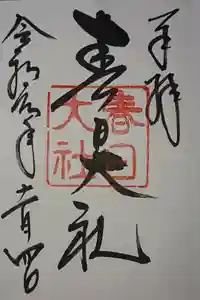 奉拝
春日社
春日大社
令和元年十一月四日